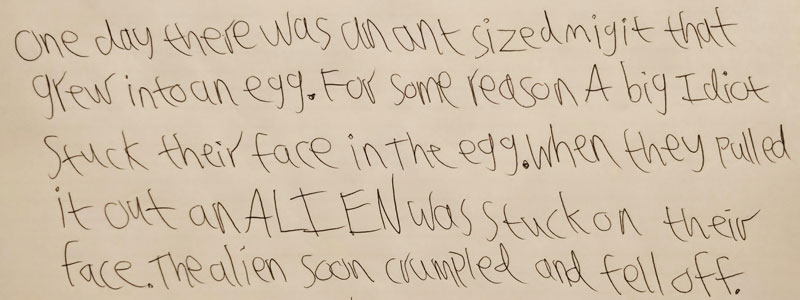 one day there was an ant sized migit that
grew into an egg. For some reason A big Idiot
Stuck their face in the egg. When they pulled
it out an ALIEN was stuck on their
face. The alien soon crumpled and fell off.